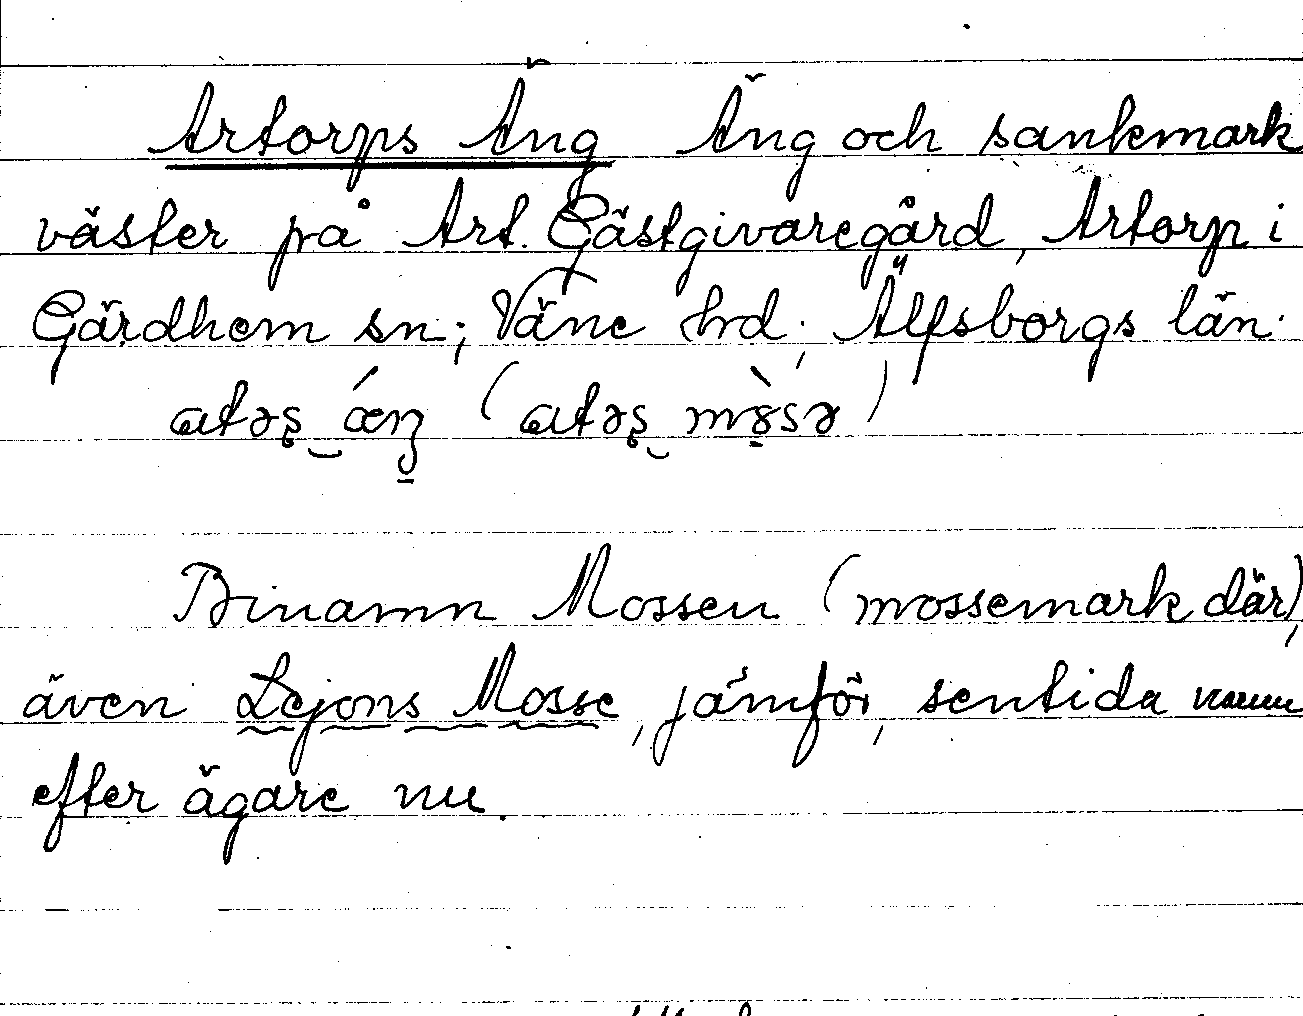 Artorps Äng Äng och sankmark
väster på Art. Gästgivaregård, Artorp i
Gärdhem sn; Väne hrd; Älfsborgs län.
atəş äŋ (atəş mòsə)
Binamn Mossen (mossemark där),
även Lejons Mosse, jämför, sentida namn
efter ägare nu.